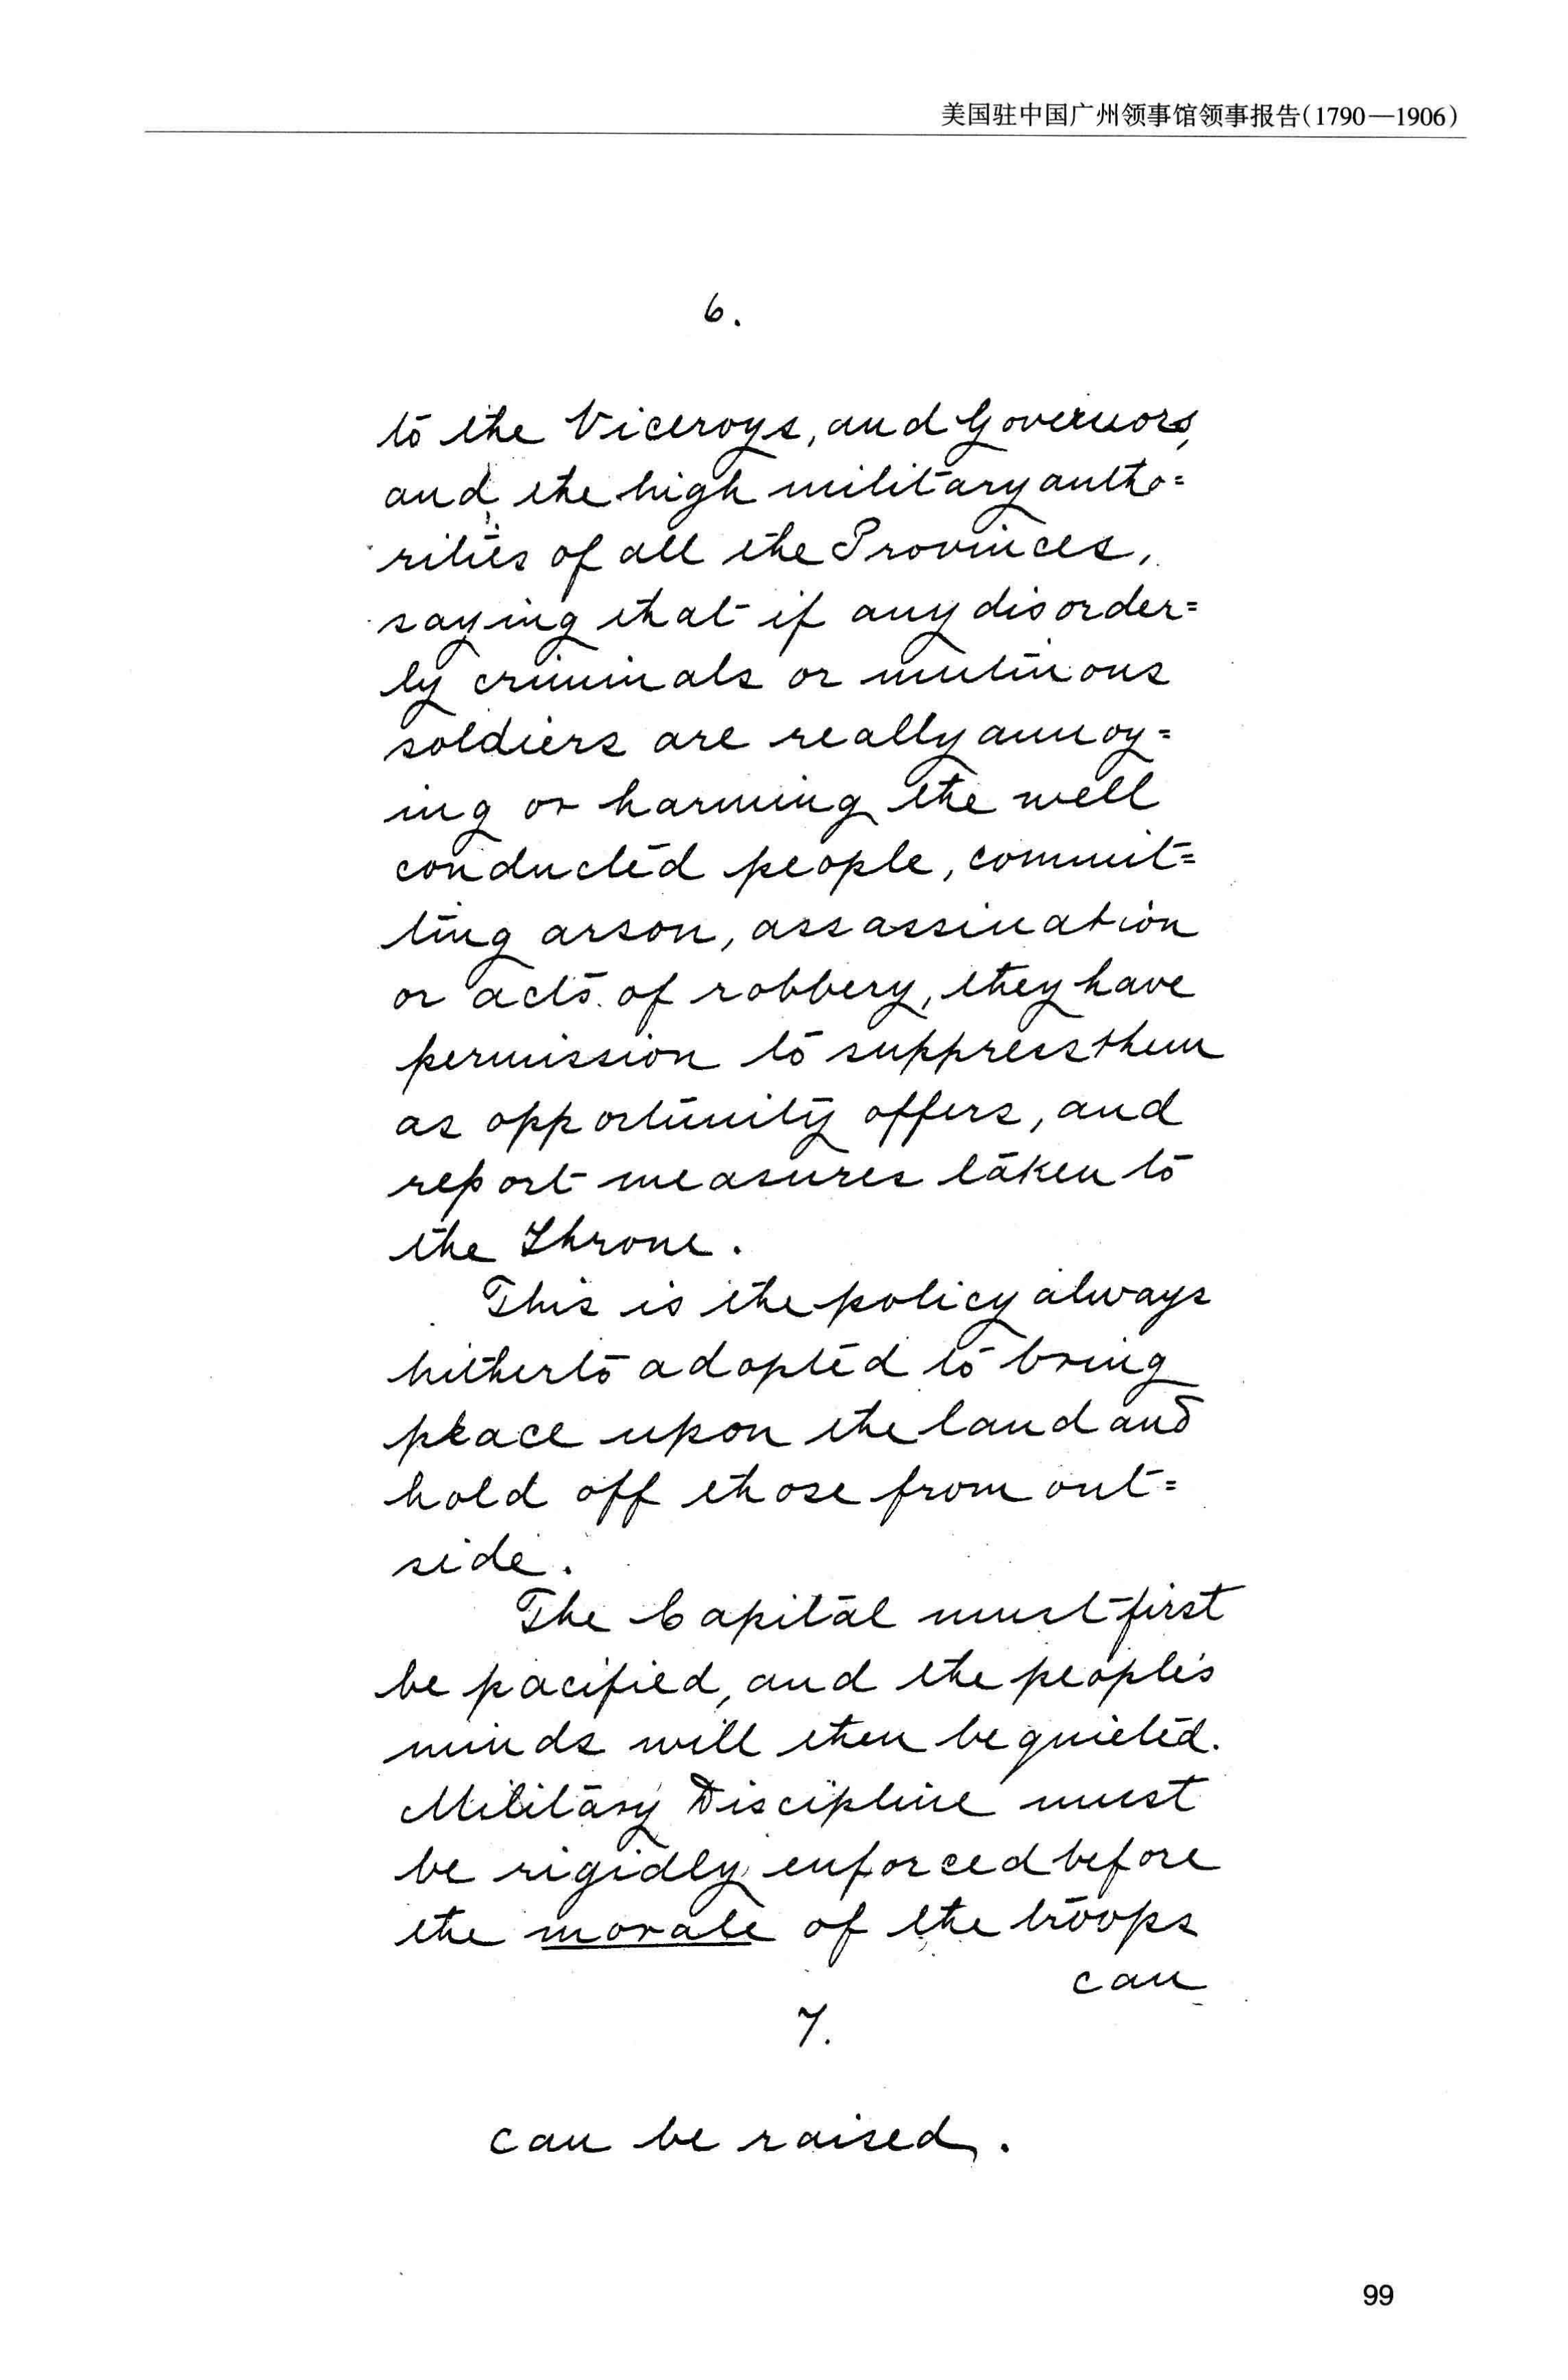 美国驻中国广州领事馆领事报告(1790—1906)
6.
to the Viceroys, and Governors,
and, the high military autho=
rities of all the Provinces,
saying that if any disorder=
ly criminals or mutinous
soldiers are really annoy=
ing or harming the well
conducted people, commit=
ting arson, assassination
or acts of robbery, they have
permission to suppress them
as opportunity offers, and
report measures taken to
the Throne.
This is the policy always
hitherto adopted to bring
peace upon the land and
hold off those from out=
side.
The Capital must first
be pacified, and the people's
minds will then be quieted.
Military Discipline must
be rigidly enforced before
the morale of the troops
can
7.
can be raised.
99